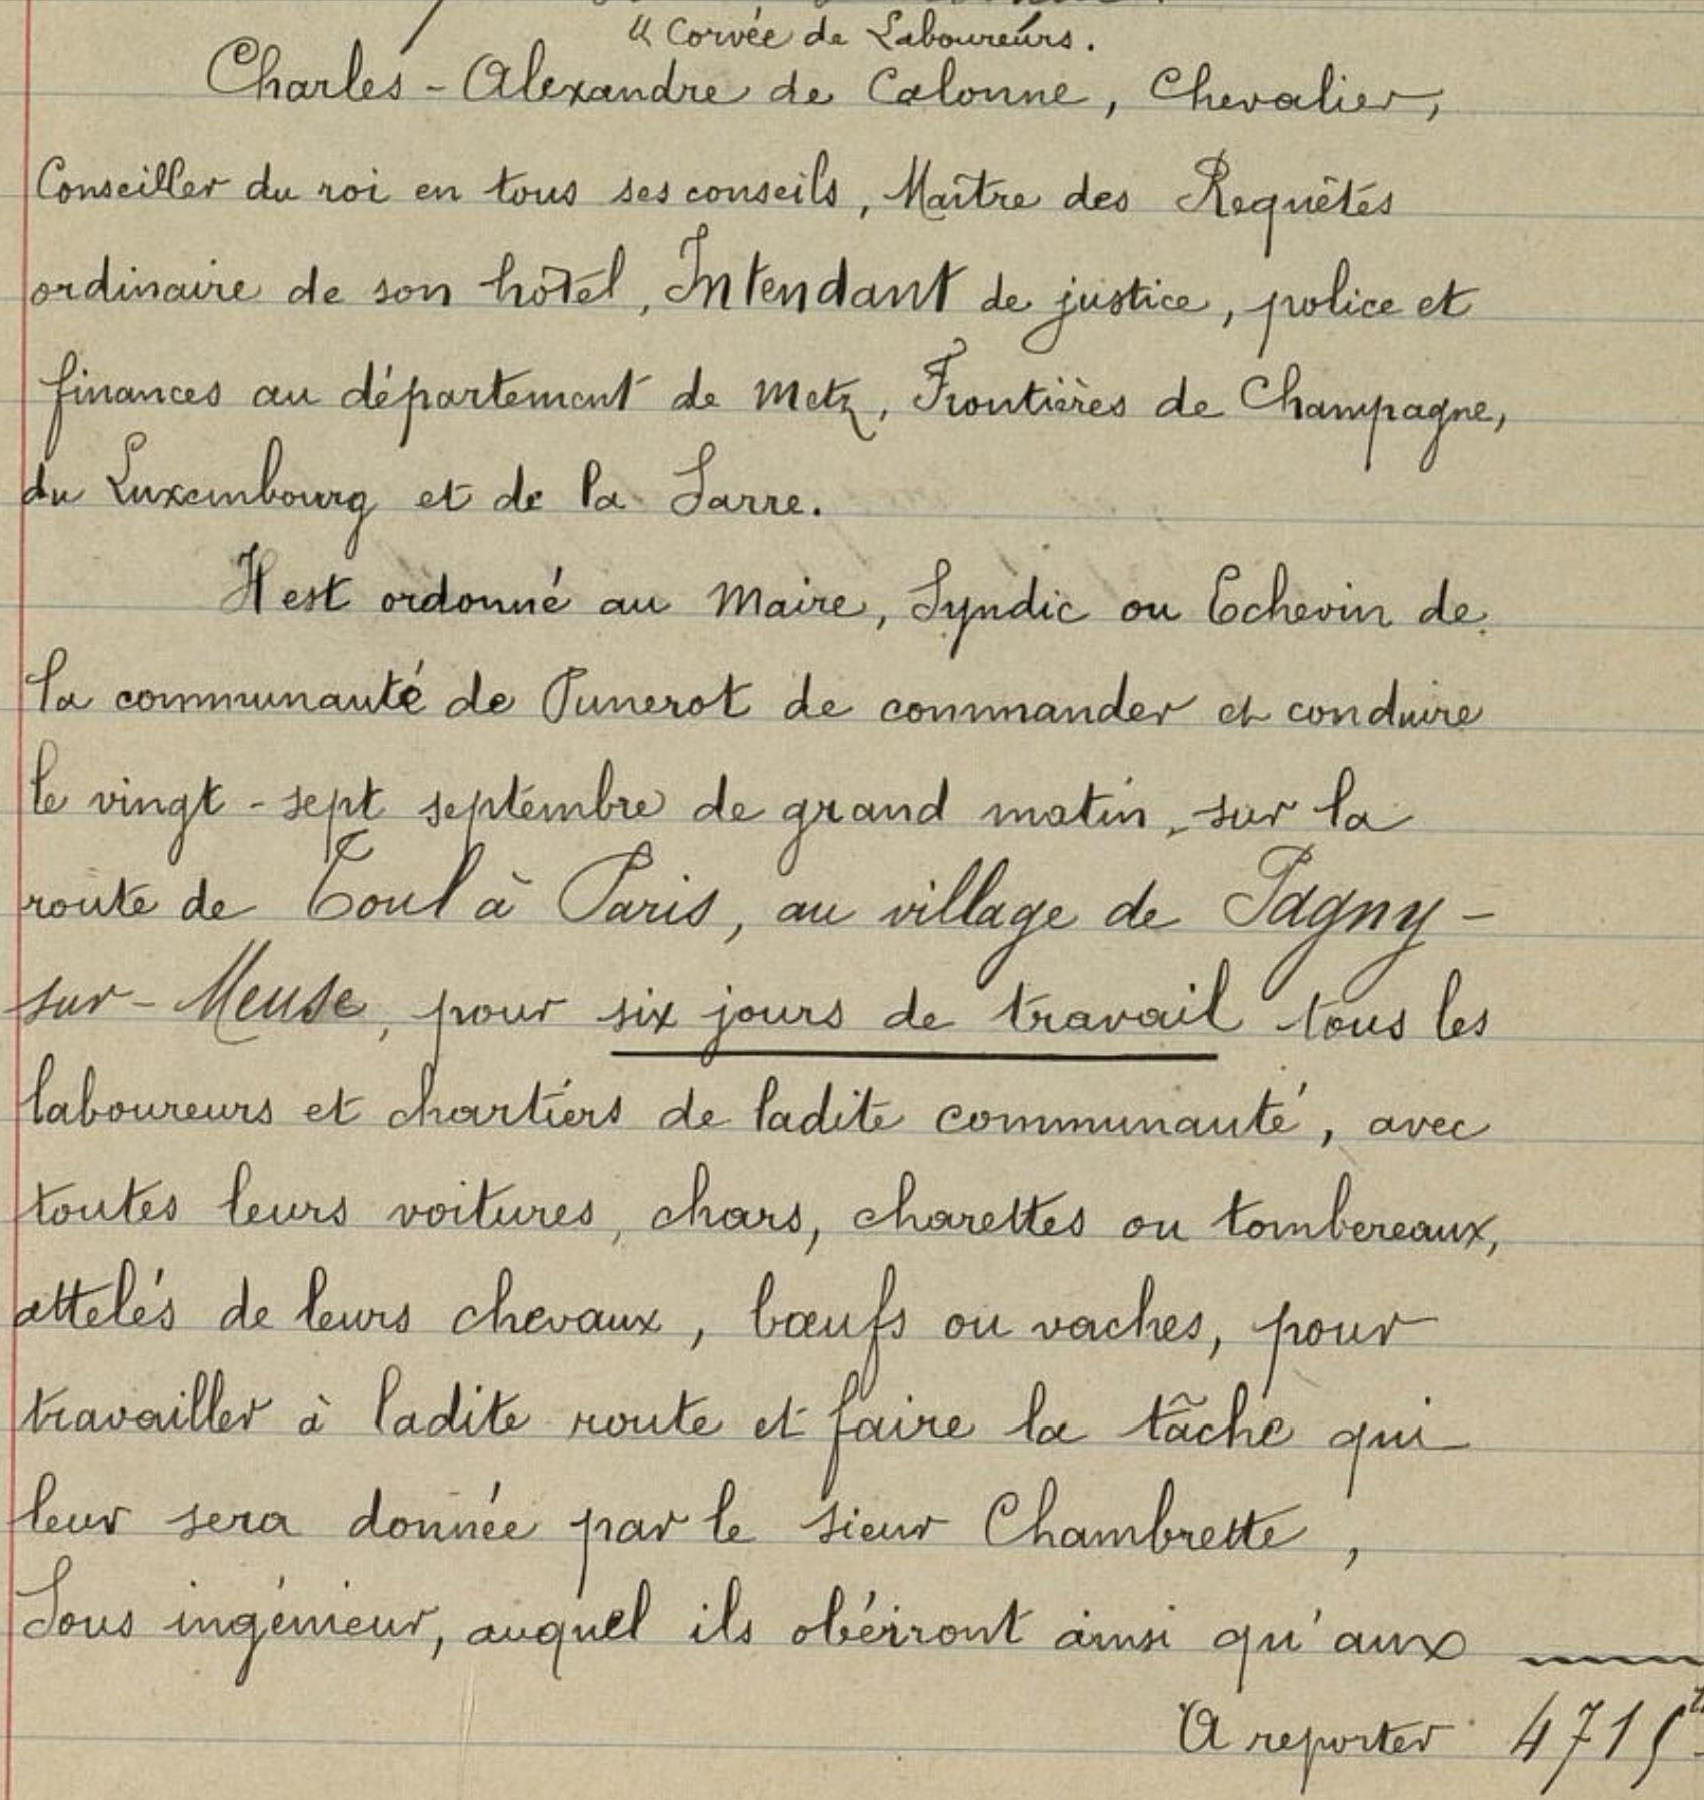 "Corvée de Laboureurs.
Charles-Alexandre de Calonne, Chevalier,
Conseiller du roi en tous ses conseils, Maître des Requêtes
ordinaire de son hôtel, Intendant de justice, police et
finances au département de Metz, Frontières de Champagne,
du Luxembourg et de la Sarre.
Il est ordonné au Maire, Syndic ou Echevin de
la communauté de Punerot de commander et conduire
le vingt-sept septembre de grand matin, sur la
route de Toul à Paris, au village de Pagny-
sur-Meuse, pour six jours de travail tous les
laboureurs et chartiers de ladite communauté, avec
toutes leurs voitures, chars, charettes ou tombereaux,
attelés de leurs chevaux, bœufs ou vaches, pour
travailler à ladite route et faire la tâche qui
leur sera donnée par le sieur Chambrette,
Sous ingénieur, auquel ils obéiront ainsi qu'aux
A reporter 4715